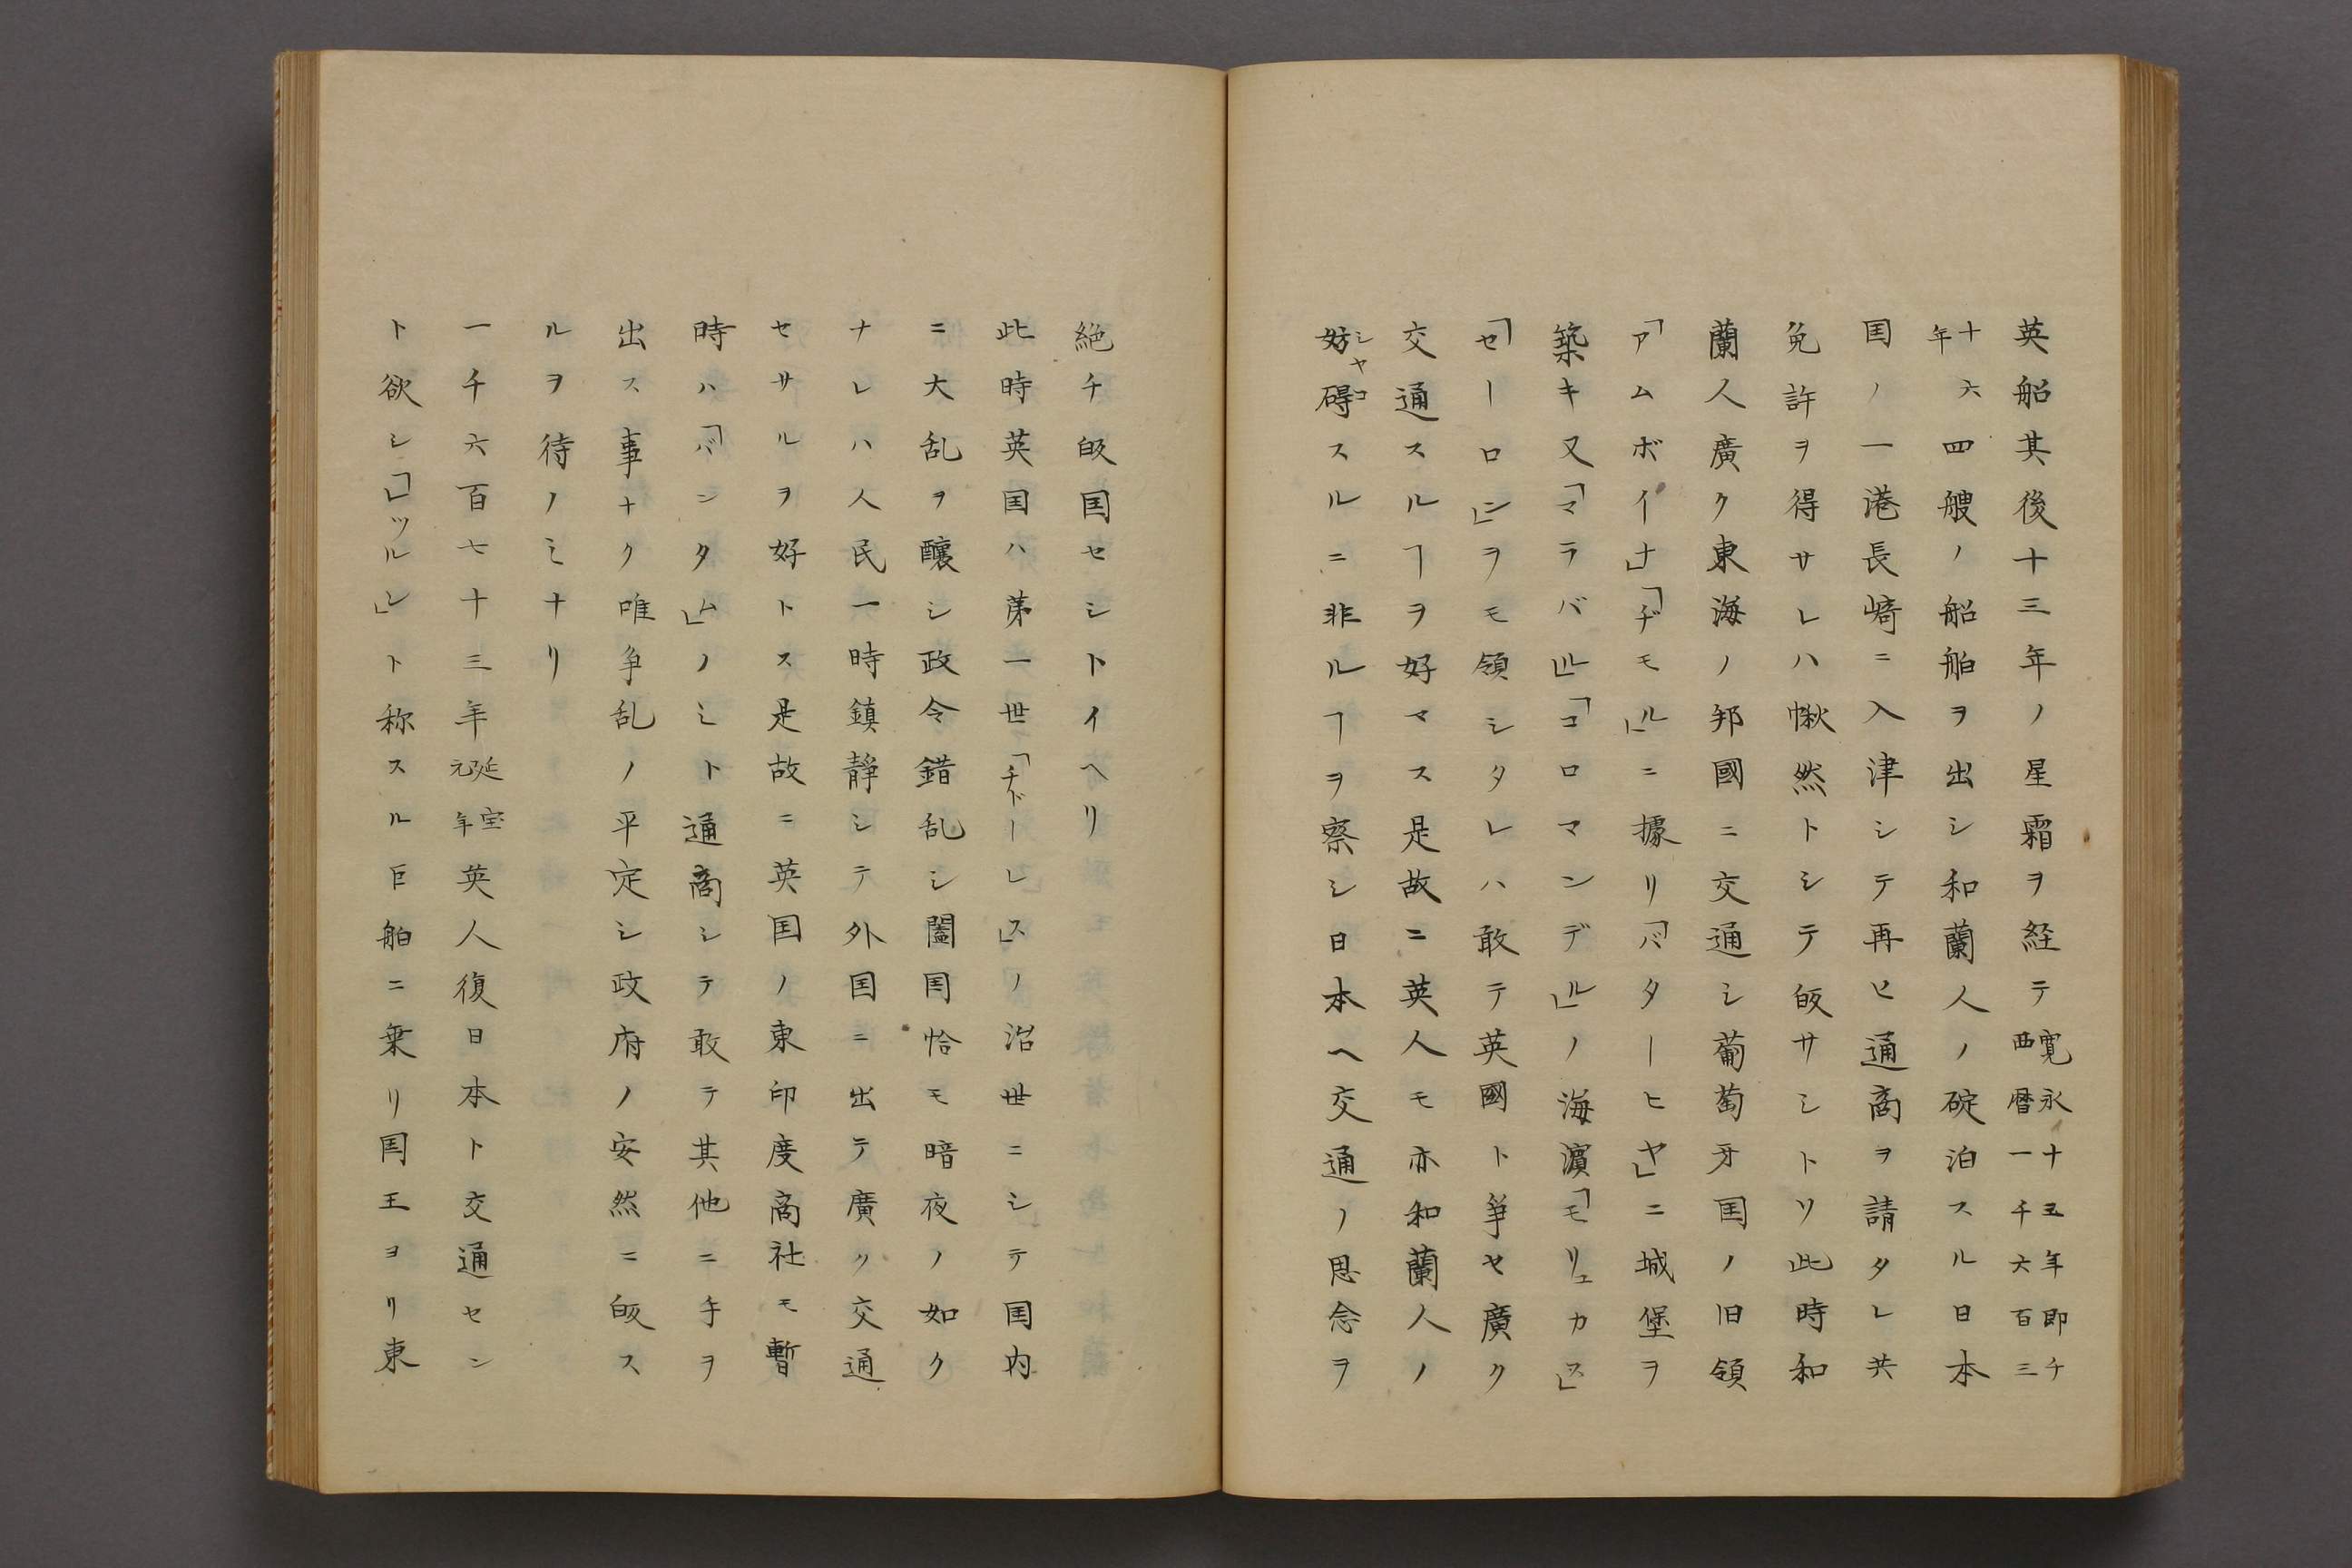 英船其後十三年ノ星霜ヲ経テ寛永十五年即チ西暦一千六百三
十六年四艘ノ船舶ヲ出シ和蘭人ノ碇泊スル日本
囯ノ一港長崎ニ入津シテ再ヒ通商ヲ請タレ共
免許ヲ得サレハ愀然トシテ皈サシトソ此時和
蘭人廣ク東海ノ邦國ニ交通シ葡萄牙囯ノ旧領
「アムボイナ」「ヂモル」ニ據リ「バターヒヤ」ニ城堡ヲ
築キ又「マラバル」「コロマンデル」ノ海濵「モリュカス」
「セーロン」ヲモ領シタレハ敢テ英國ト爭セ廣ク
交通スルヿヲ好マス是故ニ英人モ亦和蘭人ノ
妨碍スルニ非ルヿヲ察シ日本ヘ交通ノ思念ヲ
絶チ皈囯セシトイヘリ
此時英囯ハ苐一世「チドーレス」ノ治世ニシテ囯内
ニ大乱ヲ釀シ政令錯乱シ闔囯恰モ暗夜ノ如ク
ナレハ人民一時鎮静シテ外囯ニ出テ廣ク交通
セサルヲ好トス是故ニ英囯ノ東印度商社モ暫
時ハ「バンタム」ノミト通商シテ敢テ其他ニ手ヲ
出ス事ナク唯争乱ノ平定シ政府ノ安然ニ皈ス
ルヲ待ノミナリ
一千六百七十三年延宝元年英人復日本ト交通セン
ト欲シ「レツルン」ト称スル巨舶ニ乗リ囯王ヨリ東